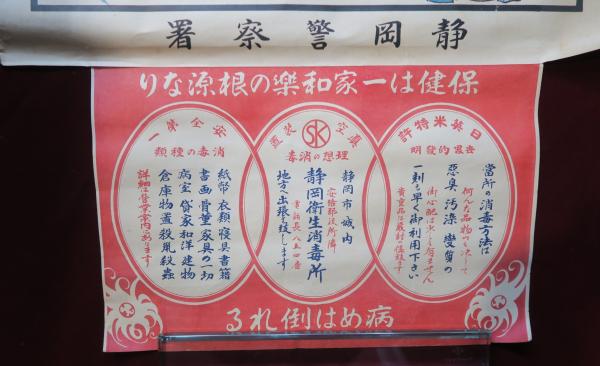 静岡警察署
保健は一家和樂の根源なり
日英米特許
世界的發明
當所の消毒方法は
何んな品物でも決して
惡臭 汚染 變質の
御心配は少しも有ません
一刻も早く御利用下さい
貴重品は嚴封で致ます
眞空装置
SK
理想の消毒
静岡市城内
安倍郡役所隣
静岡衛生消毒所
電話長八五四番
地方へ出張も致します
安全第一
消毒の種類
紙幣 衣類 寝具 書籍
書画 骨董 家具の一切
病室 貸家 和洋建物
倉庫 物置 殺鼠 殺蟲
詳細は營業案内にあります
病めば倒れる